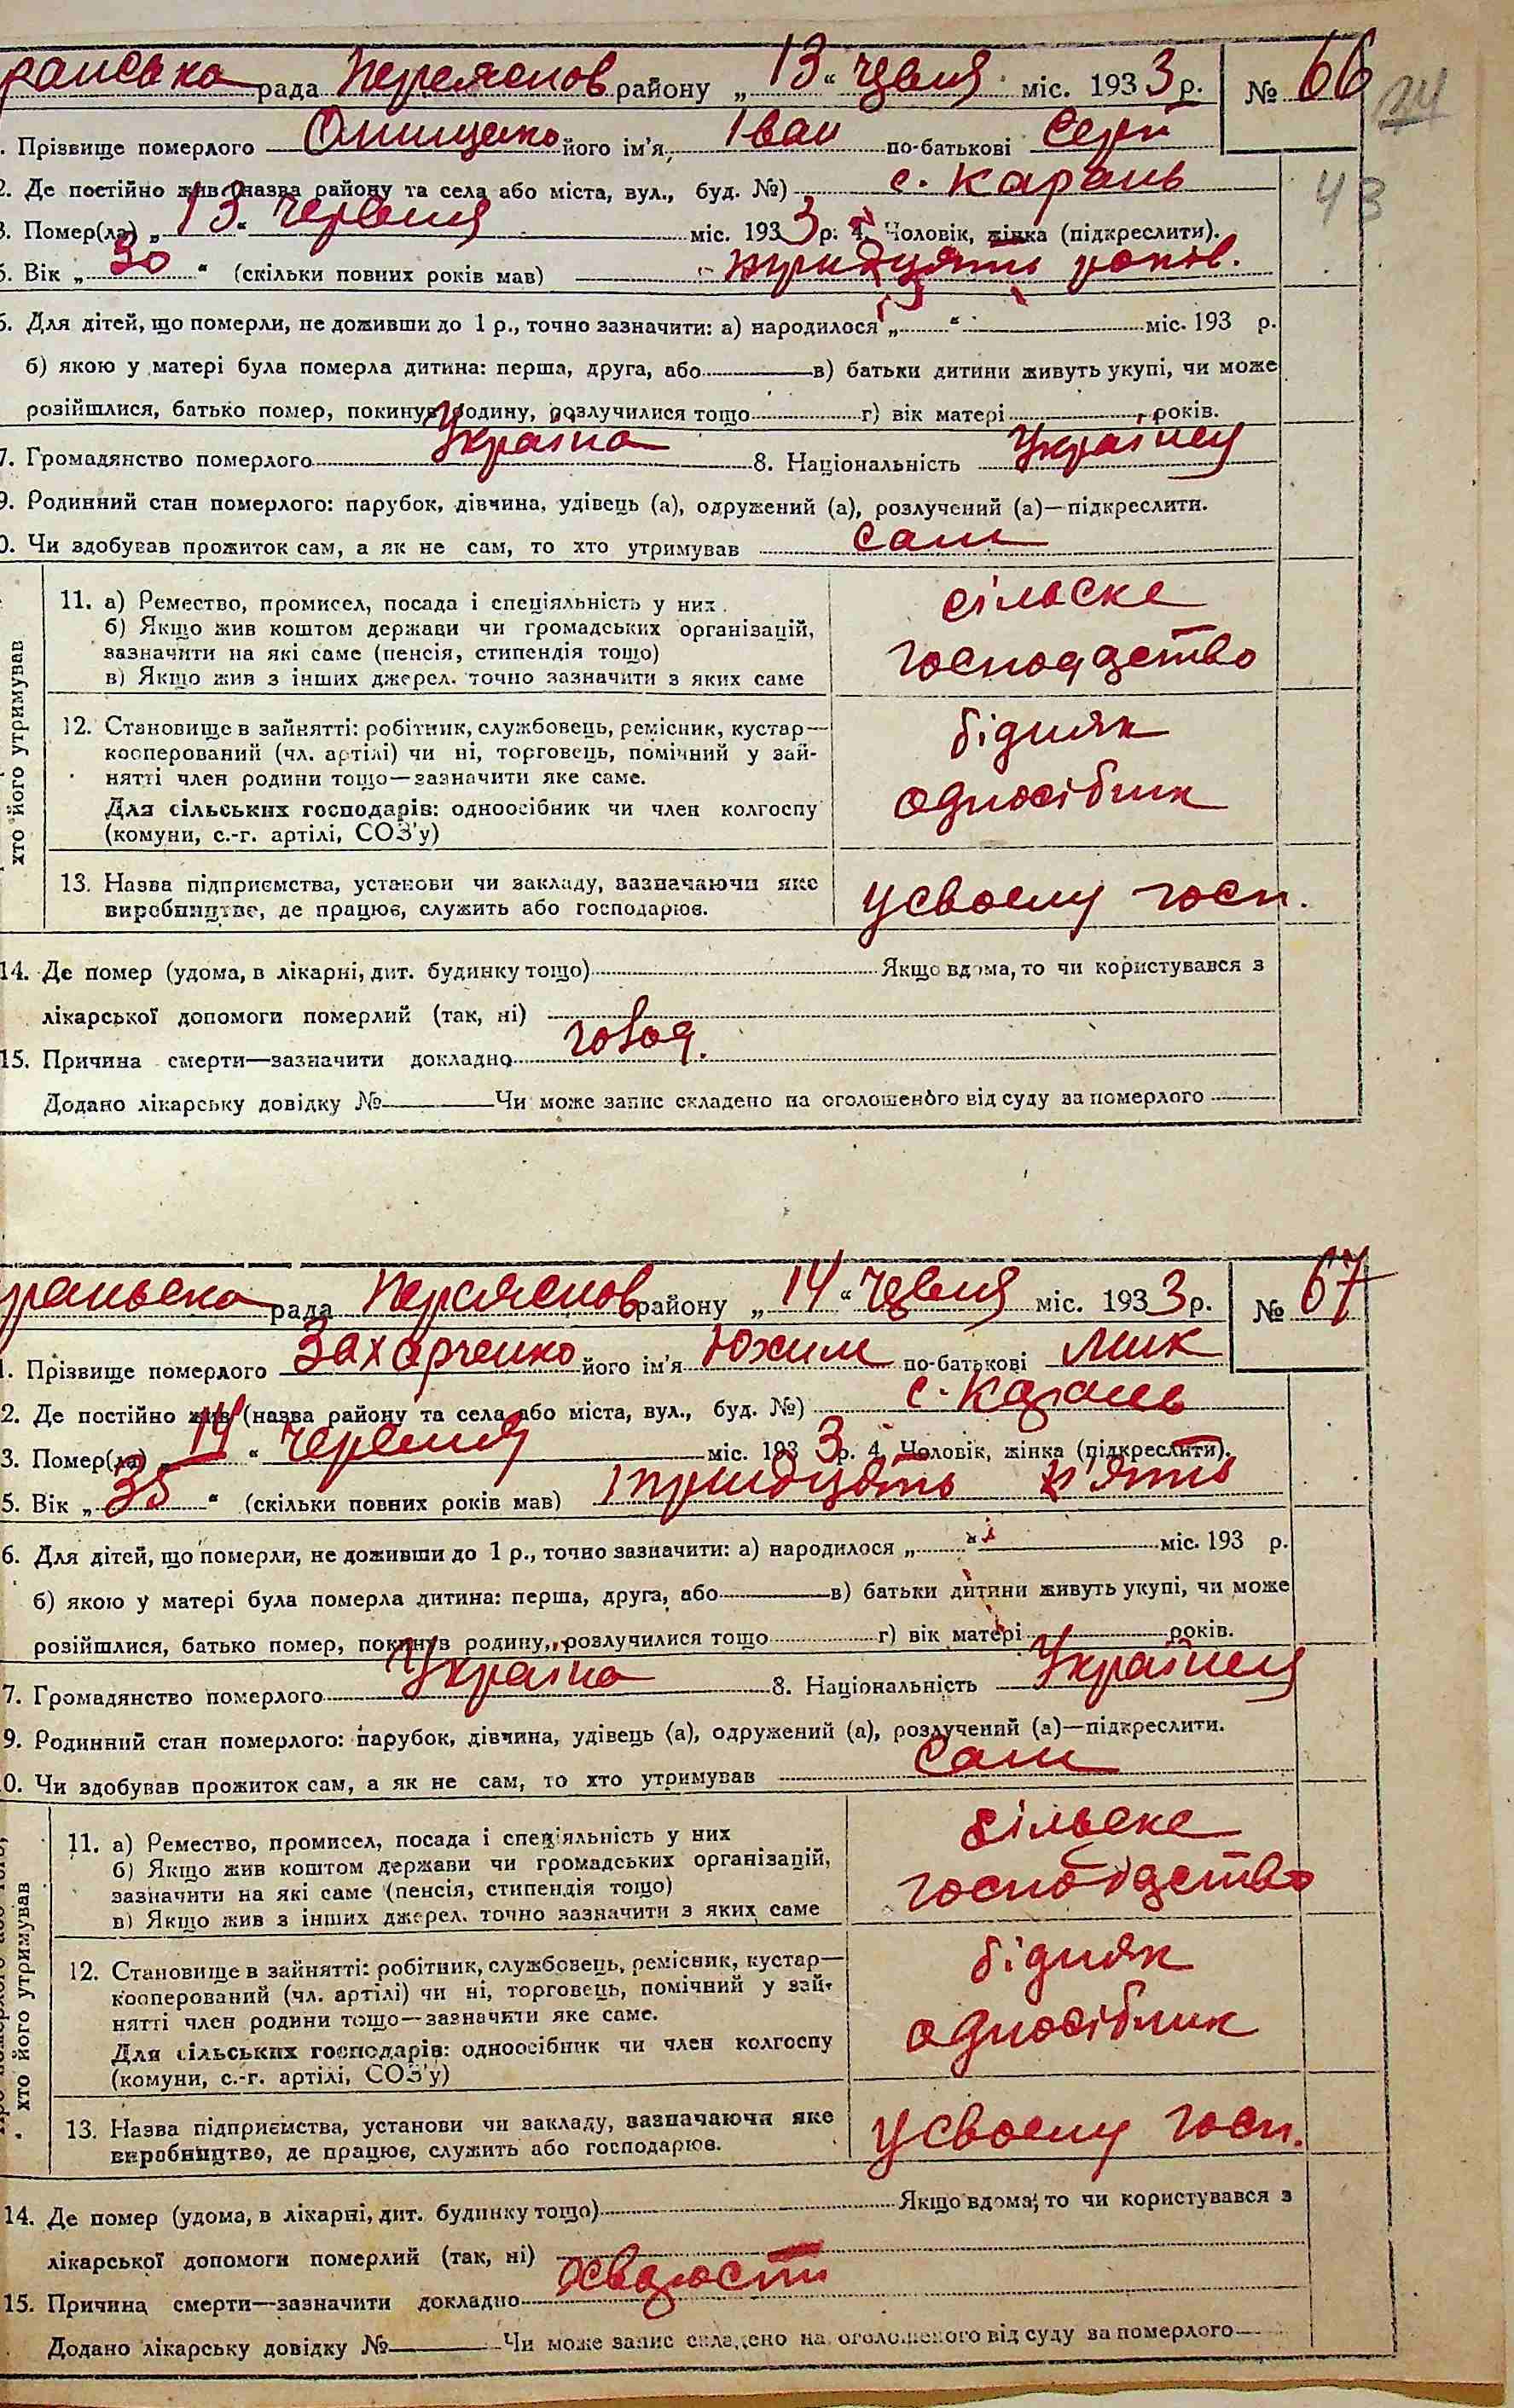 ранська рада Переяслов району „13“ Червня міс. 1933 р. № 66
24
. Прізвище померлого Онищенко його ім’я, Іван по-батькові Серг
2. Де постійно жив (назва району та села або міста, вул., буд. №) с. Карань
43
3. Помер(ла) „13“ червня міс. 1933 р. 4. Чоловік, жінка (підкреслити).
5. Вік „30“ (скільки повних років мав) тридцять років.
6. Для дітей, що померли, не доживши до 1 р., точно зазначити: а) народилося „ “ міс. 193 р.
б) якою у матері була померла дитина: перша, друга, або в) батьки дитини живуть укупі, чи може
розійшлися, батько помер, покинув родину, розлучилися тощо г) вік матері років.
7. Громадянство померлого Україна 8. Національність Українец
9. Родинний стан померлого: парубок, дівчина, удівець (а), одружений (а), розлучений (а)—підкреслити.
0. Чи здобував прожиток сам, а як не сам, то хто утримував сам
хто його утримував
11. а) Ремество, промисел, посада і спеціяльність у них
б) Якщо жив коштом держави чи громадських організацій,
зазначити на які саме (пенсія, стипендія тощо)
в) Якщо жив з інших джерел. точно зазначити з яких саме
сільске
господдство
12. Становище в зайнятті: робітник, службовець, ремісник, кустар—
кооперований (чл. артілі) чи ні, торговець, помічний у зай-
нятті член родини тощо—зазначити яке саме.
Для сільських господарів: одноосібник чи член колгоспу
(комуни, с.-г. артілі, СОЗ’у)
бідняк
односібник
13. Назва підприємства, установи чи закладу, зазначаючи яке
виробництво, де працює, служить або господарює.
усвоему госп.
14. Де помер (удома, в лікарні, дит. будинку тощо) Якщо вдома, то чи користувався з
лікарської допомоги померлий (так, ні)
15. Причина смерти—зазначити докладно голод.
Додано лікарську довідку № Чи може запис складено на оголошеного від суду за померлого
раньска рада Переяслов району „14“ Червня міс. 1933 р. № 67
1. Прізвище померлого Захарченко його ім’я Юхим по-батькові Мик
2. Де постійно жив (назва району та села або міста, вул., буд. №) с. Карань
3. Помер(ла) „14“ червня міс. 1933 р. 4. Чоловік, жінка (підкреслити).
5. Вік „35“ (скільки повних років мав) тридцять п’ять
6. Для дітей, що померли, не доживши до 1 р., точно зазначити: а) народилося „ “ міс. 193 р.
б) якою у матері була померла дитина: перша, друга, або в) батьки дитини живуть укупі, чи може
розійшлися, батько помер, покинув родину, розлучилися тощо г) вік матері років.
7. Громадянство померлого Україна 8. Національність Українец
9. Родинний стан померлого: парубок, дівчина, удівець (а), одружений (а), розлучений (а)—підкреслити.
0. Чи здобував прожиток сам, а як не сам, то хто утримував сам
хто його утримував
11. а) Ремество, промисел, посада і спеціяльність у них
б) Якщо жив коштом держави чи громадських організацій,
зазначити на які саме (пенсія, стипендія тощо)
в) Якщо жив з інших джерел. точно зазначити з яких саме
сільске
господдство
12. Становище в зайнятті: робітник, службовець, ремісник, кустар—
кооперований (чл. артілі) чи ні, торговець, помічний у зай-
нятті член родини тощо—зазначити яке саме.
Для сільських господарів: одноосібник чи член колгоспу
(комуни, с.-г. артілі, СОЗ’у)
бідняк
односібник
13. Назва підприємства, установи чи закладу, зазначаючи яке
виробництво, де працює, служить або господарює.
усвоему госп.
14. Де помер (удома, в лікарні, дит. будинку тощо) Якщо вдома, то чи користувався з
лікарської допомоги померлий (так, ні)
15. Причина смерти—зазначити докладно
Додано лікарську довідку № Чи може запис складено на оголошеного від суду за померлого